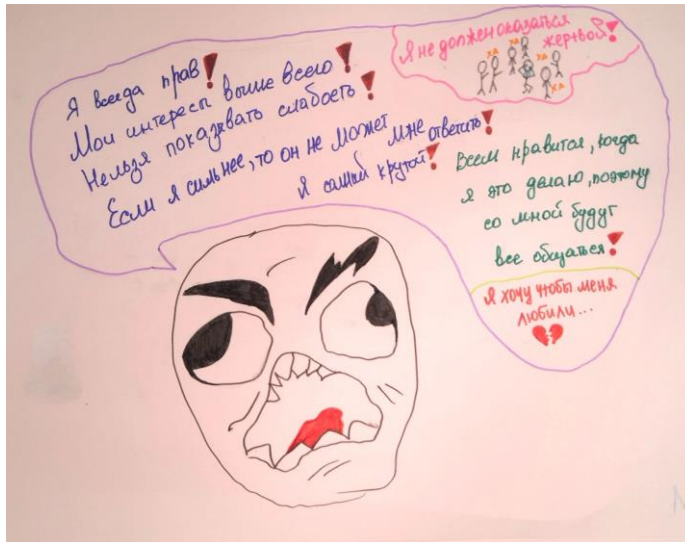 Я всегда прав!
Мои интересы выше всего!
Нельзя показывать слабость!
Если я сильнее, то он не может мне ответить!
Я самый крутой!
Я не должен оказаться
жертвой!
ха ха
ха
ха
Всем нравится, когда
я это делаю, поэтому
со мной будут
все общаться!
Я хочу чтобы меня
любили...